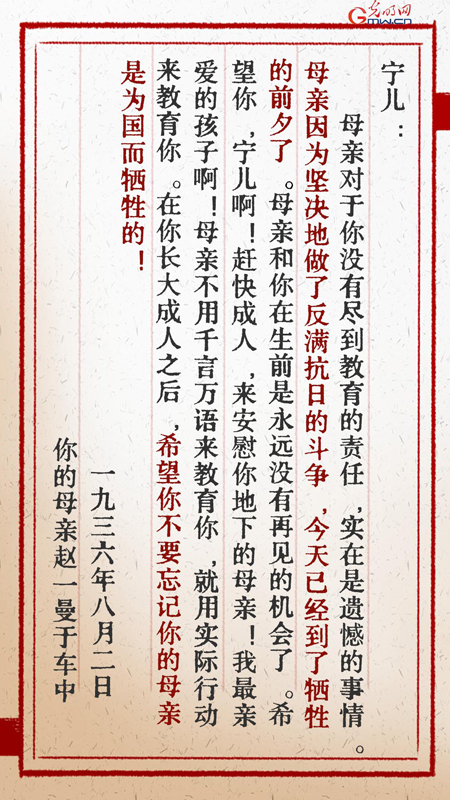 光明网
GMW.CN
宁儿：
母亲对于你没有尽到教育的责任，实在是遗憾的事情。
母亲因为坚决地做了反满抗日的斗争，今天已经到了牺牲
的前夕了。母亲和你在生前是永远没有再见的机会了。希
望你，宁儿啊！赶快成人，来安慰你地下的母亲！我最亲
爱的孩子啊！母亲不用千言万语来教育你，就用实际行动
来教育你。在你长大成人之后，希望你不要忘记你的母亲
是为国而牺牲的！
一九三六年八月二日
你的母亲赵一曼于车中